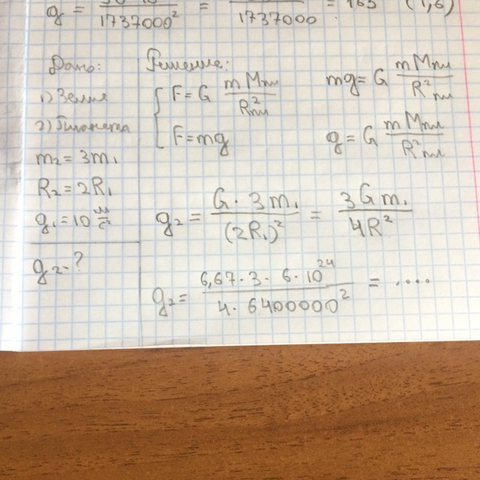 g = 1737000² = 1737000 = 165 (1,6)
Дано:
1) Земля
2) Планета
m₂ = 3m₁
R₂ = 2R₁
g₁ = 10 м/с²
g₂ - ?
Решение:
F = G mMпл / R²пл
F = mg
mg = G mMпл / R²пл
g = G mMпл / R²пл
g₂ = G · 3m₁ / (2R₁)² = 3Gm₁ / 4R²
g₂ = 6,67 · 3 · 6 · 10²⁴ / 4 · 6400000² = ....